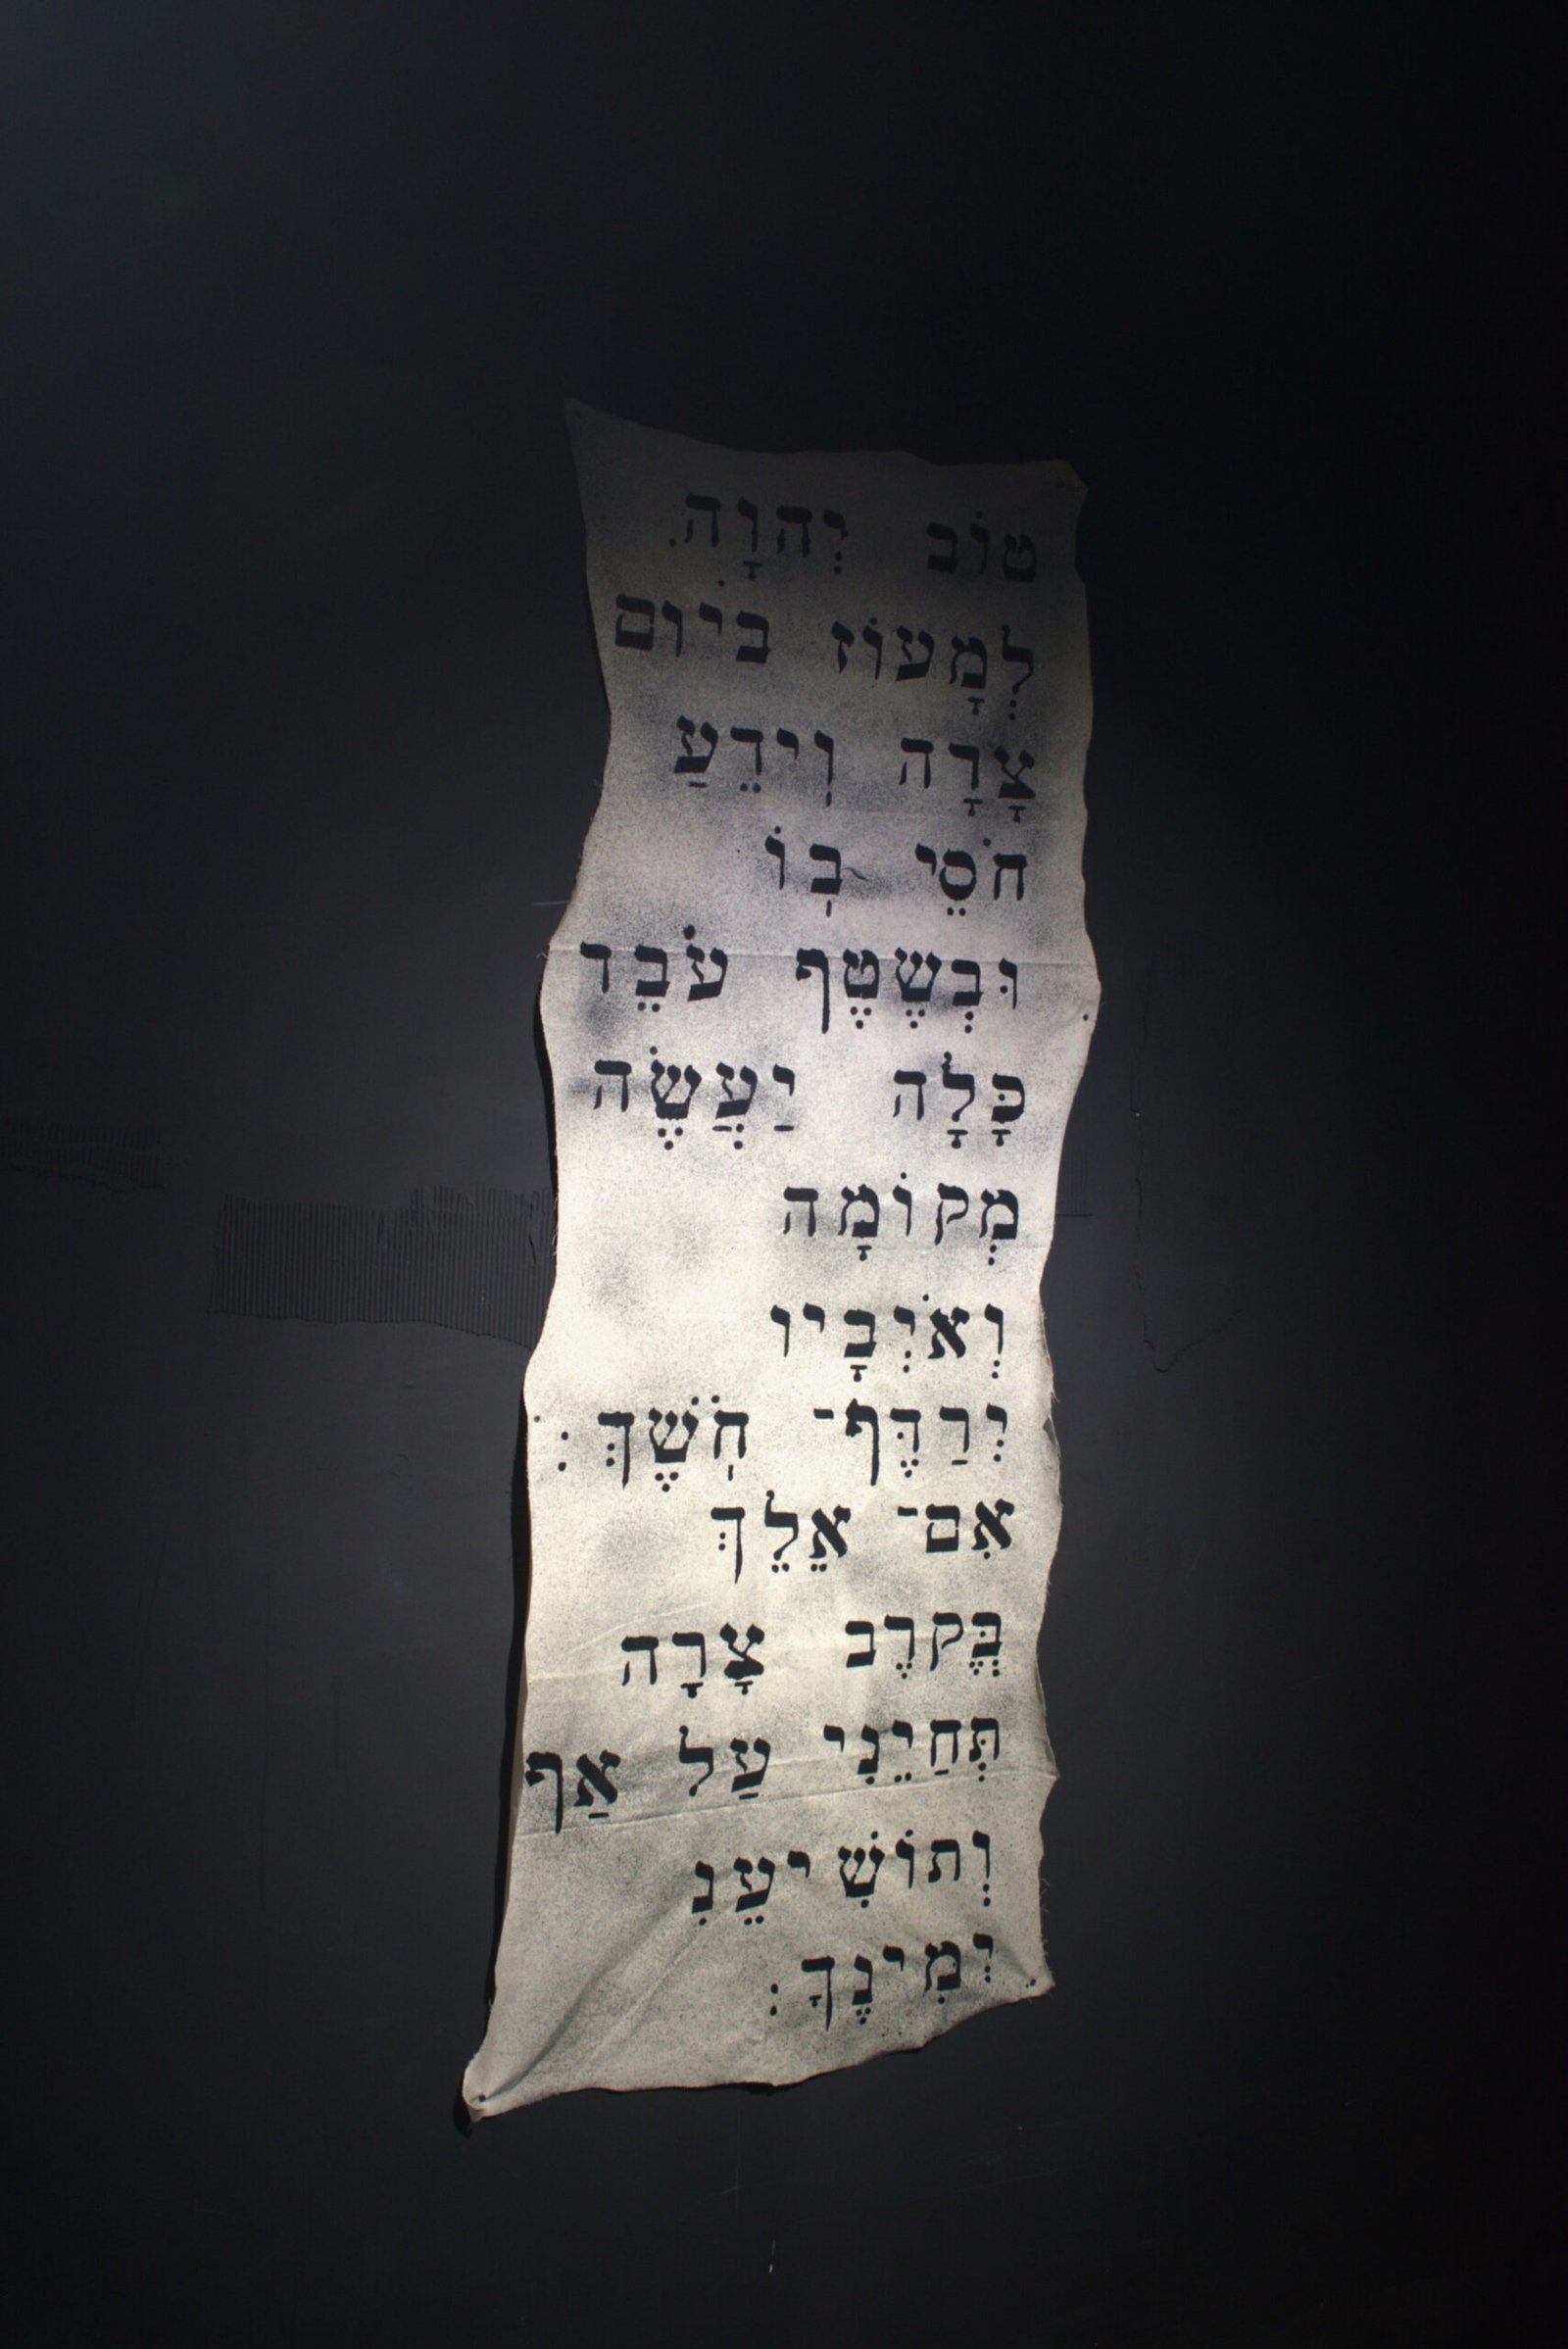 טוֹב יְהוָה
לְמָעוֹז בּיוֹם
צָרָה וְידֵעַ
חֹסֵי בוֹ
וּבְשֶטֶף עֹבֵר
כָּלָה יַעֲשֶׂה
מְקוֹמָה
וְאֹיְבָיו
יְרַדֶּף־ חֹשֶׁךְ:
אִם־ אֵלֵךְ
בְּקֶרֶב צָרָה
תְּחַיֵנִי עַל אַף
וְתוֹשִׁיעֵנִ
יְמִינֶךָ: